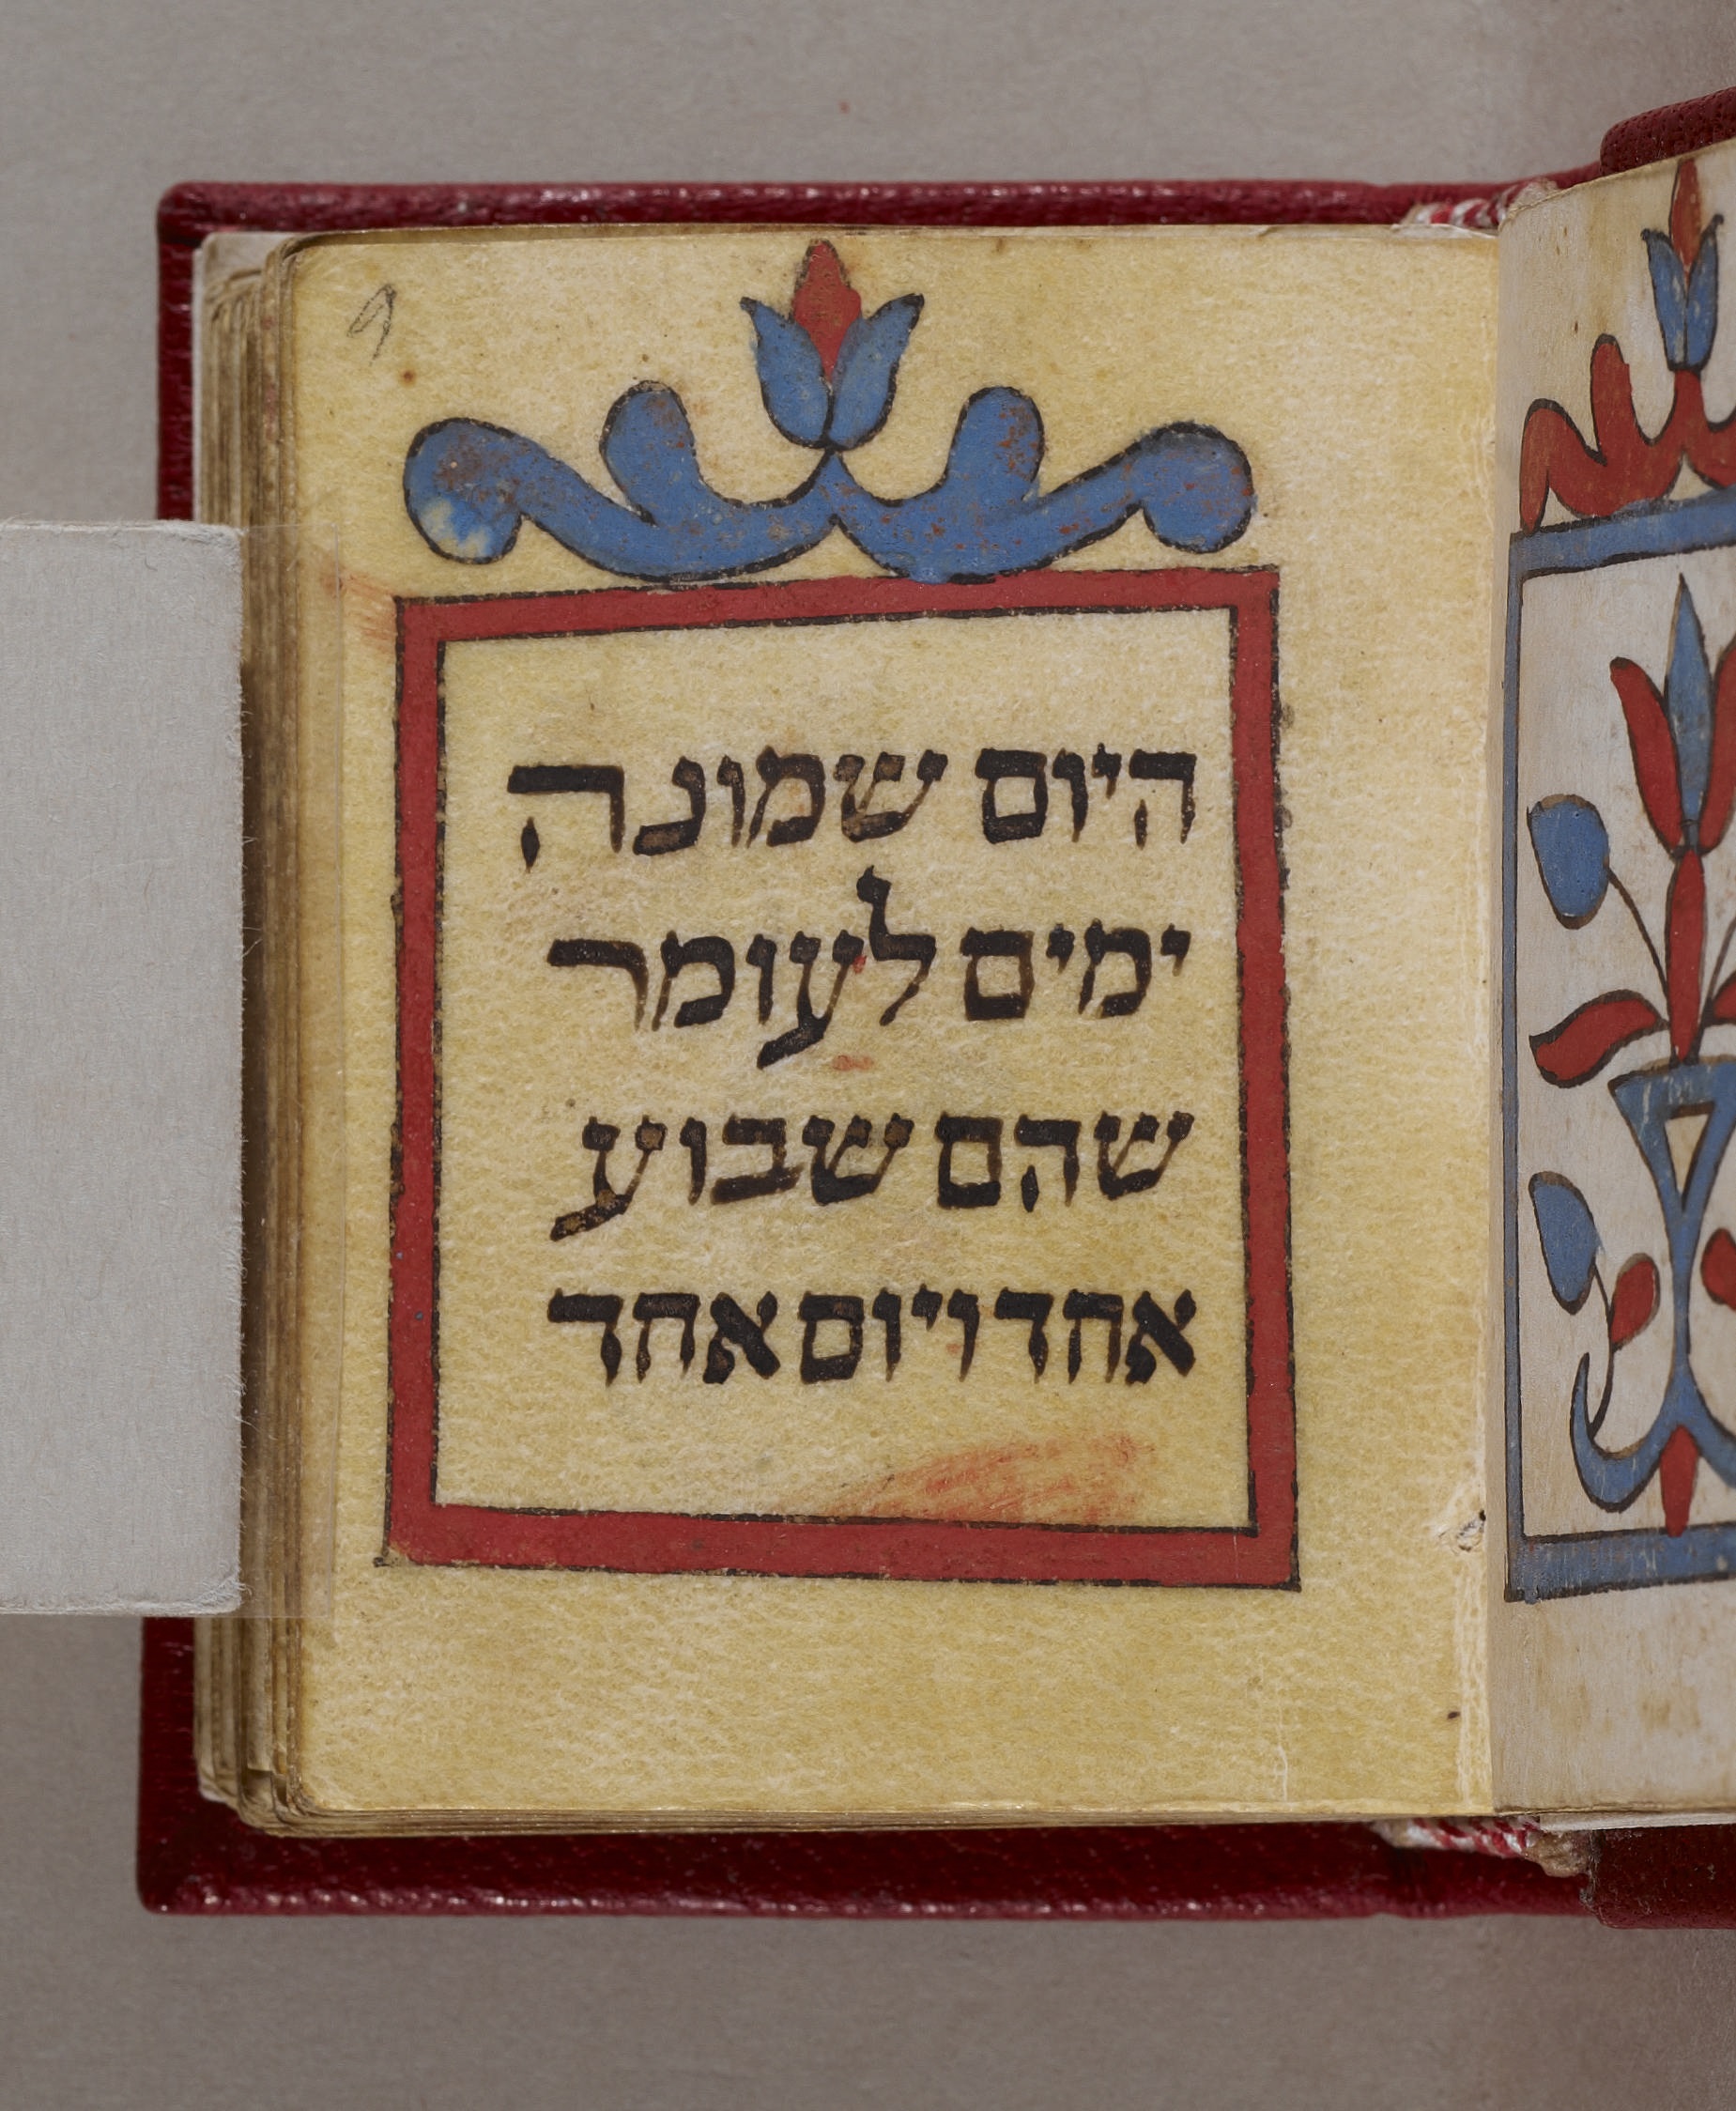 9
היום שמונה
ימים לעומר
שהם שבוע
אחד ויום אחד